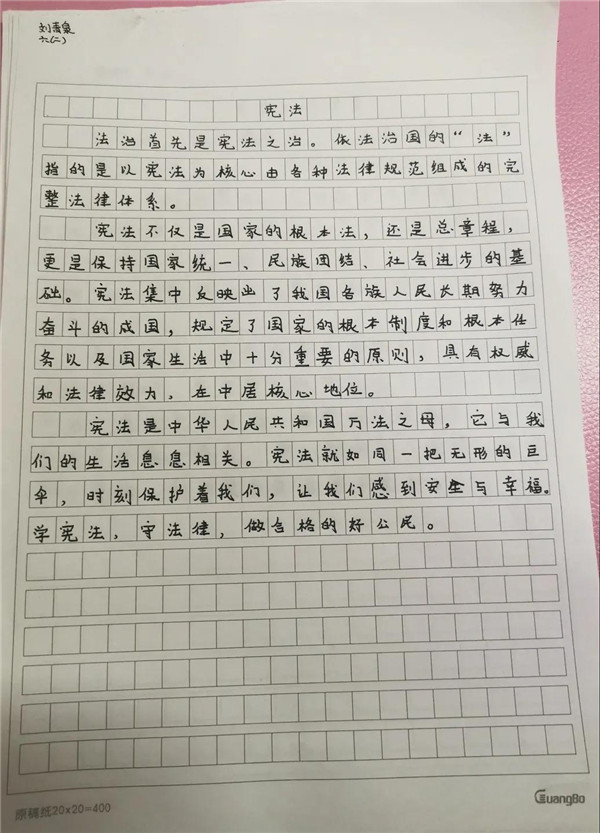 刘萧泉
六(二)
宪法
法治首先是宪法之治。依法治国的“法”
指的是以宪法为核心由各种法律规范组成的完
整法律体系。
宪法不仅是国家的根本法，还是总章程，
更是保持国家统一、民族团结、社会进步的基
础。宪法集中反映出了我国各族人民长期努力
奋斗的成国，规定了国家的根本制度和根本任
务以及国家生活中十分重要的原则，具有权威
和法律效力，在中居核心地位。
宪法是中华人民共和国万法之母，它与我
们的生活息息相关。宪法就如同一把无形的巨
伞，时刻保护着我们，让我们感到安全与幸福。
学宪法，守法律，做合格的好公民。
原稿纸20x20=400
GuangBo